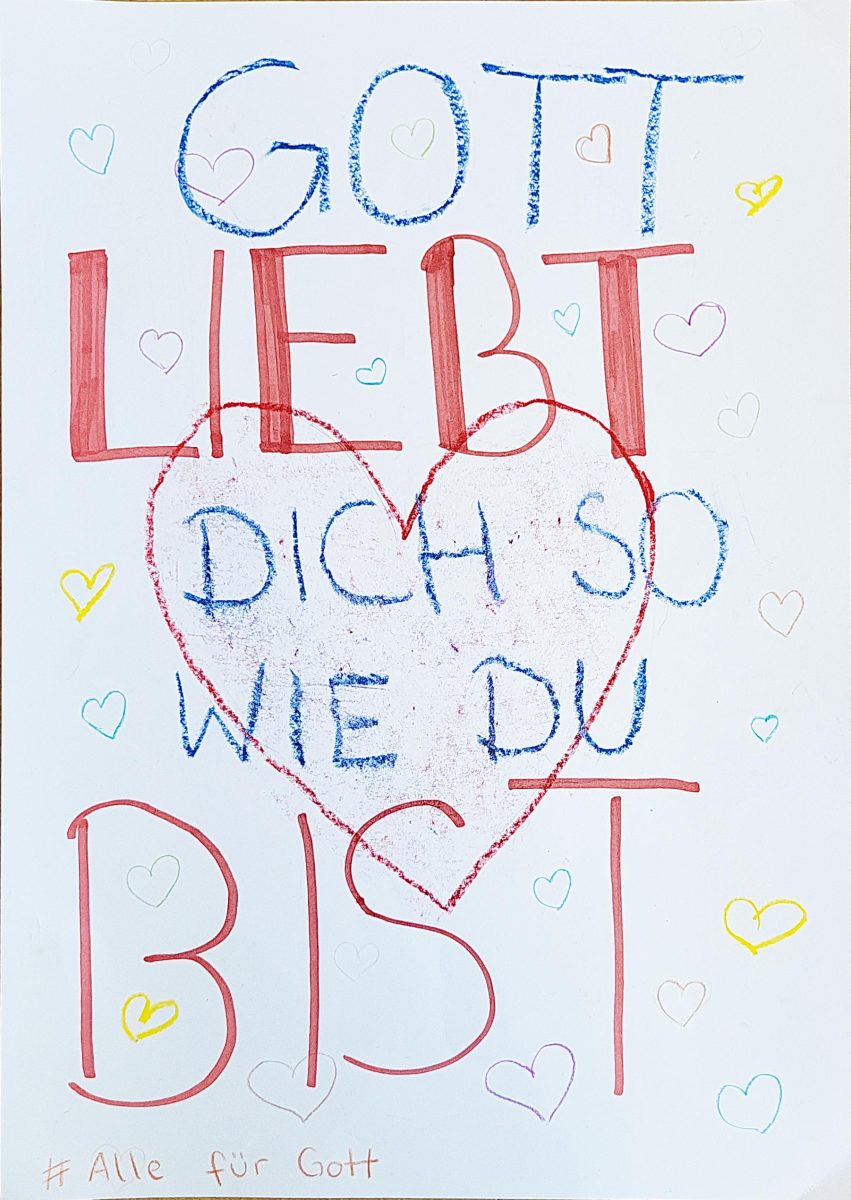 GOTT
LIEBT
DICH SO
WIE DU
BIST
# Alle für Gott